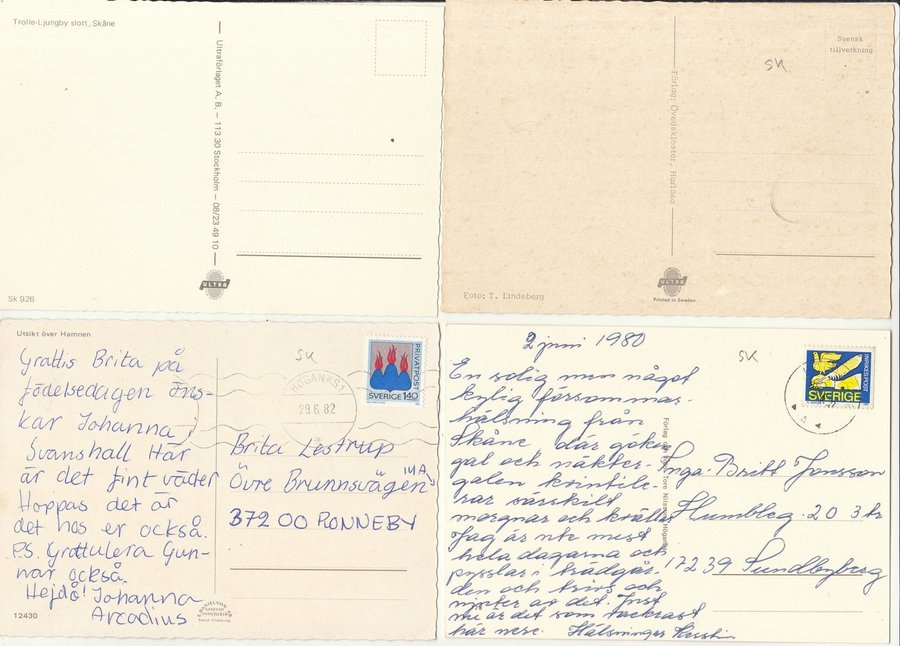 Trolle-Ljungby slott, Skåne
Ultraförlaget A. B. — 113 30 Stockholm — 08/23 49 10
ULTRA
Sk 926
Svensk
tillverkning
SK
Förlag: Övedskloster, Harlösa
Foto: T. Lindeberg
ULTRA
Printed in Sweden
Utsikt över Hamnen
SK
Grattis Brita på
födelsedagen öns-
kar Johanna i
Svanshall Här
är det fint väder
Hoppas det är
det hos er också.
P.S. Gratulera Gun-
nar också.
Hejdå! Johanna
Arcadius
12430
HÖGANÄS 1
29.6.82
PRIVATPOST
SVERIGE 140
Brita Lestrup
Övre Brunnsvägen 14A
372 00 RONNEBY
2 juni 1980
SK
En solig men något
kylig försommar-
hälsning från
Skåne där göken
gal och näkter-
galen kvintile-
rar särskilt
morgnar och kvällar
Jag är ute mest
hela dagarna och
pysslar i trädgår-
den och trivs och
njuter av det. Just
nu är det som vackrast
här nere. Hälsningar Kerstin
INRIKES POST
SVERIGE
Inga-Britt Jonsson
Humbleg. 20 3 tr
172 39 Sundbyberg